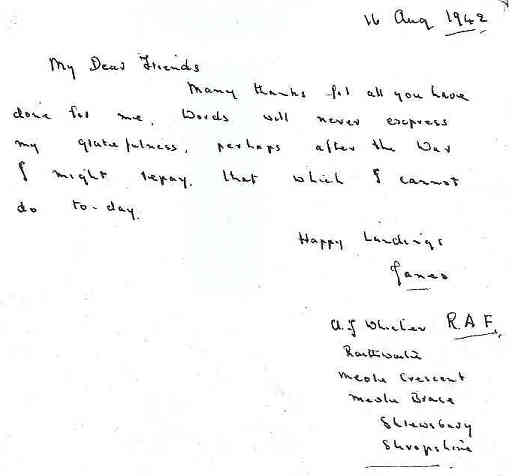 16 Aug 1942
My Dear Friends
Many thanks for all you have
done for me. Words will never express
my gratefulness, perhaps after the War
I might repay, that which I cannot
do to-day.
Happy Landings
James
A. J. Whicher R.A.F.
Meole Crescent
Meole Brace
Shrewsbury
Shropshire